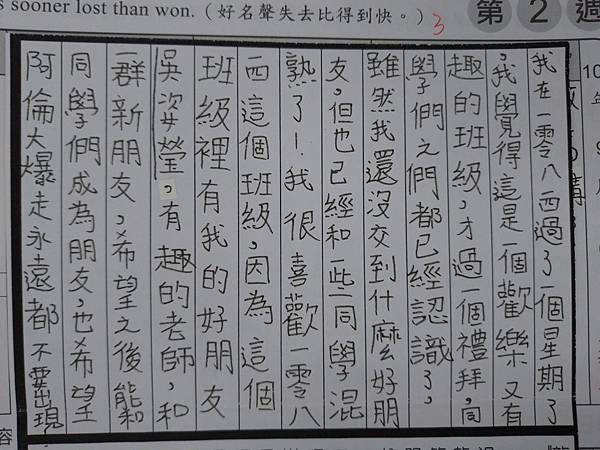 s sooner lost than won.(好名聲失去比得到快。) 3
第2週
我在一零八西過了一個星期了
,我覺得這是一個歡樂又有
趣的班級,才過一個禮拜,同
學們之們都已經認識了,
雖然我還沒交到什麼好朋
友,但也已經和一些同學混
熟了!我很喜歡一零八
西這個班級,因為這個
班級裡有我的好朋友
吳姿瑩,有趣的老師,和
一群新朋友,希望之後能和
同學們成為朋友,也希望
阿倫大爆走永遠都不要出現
容